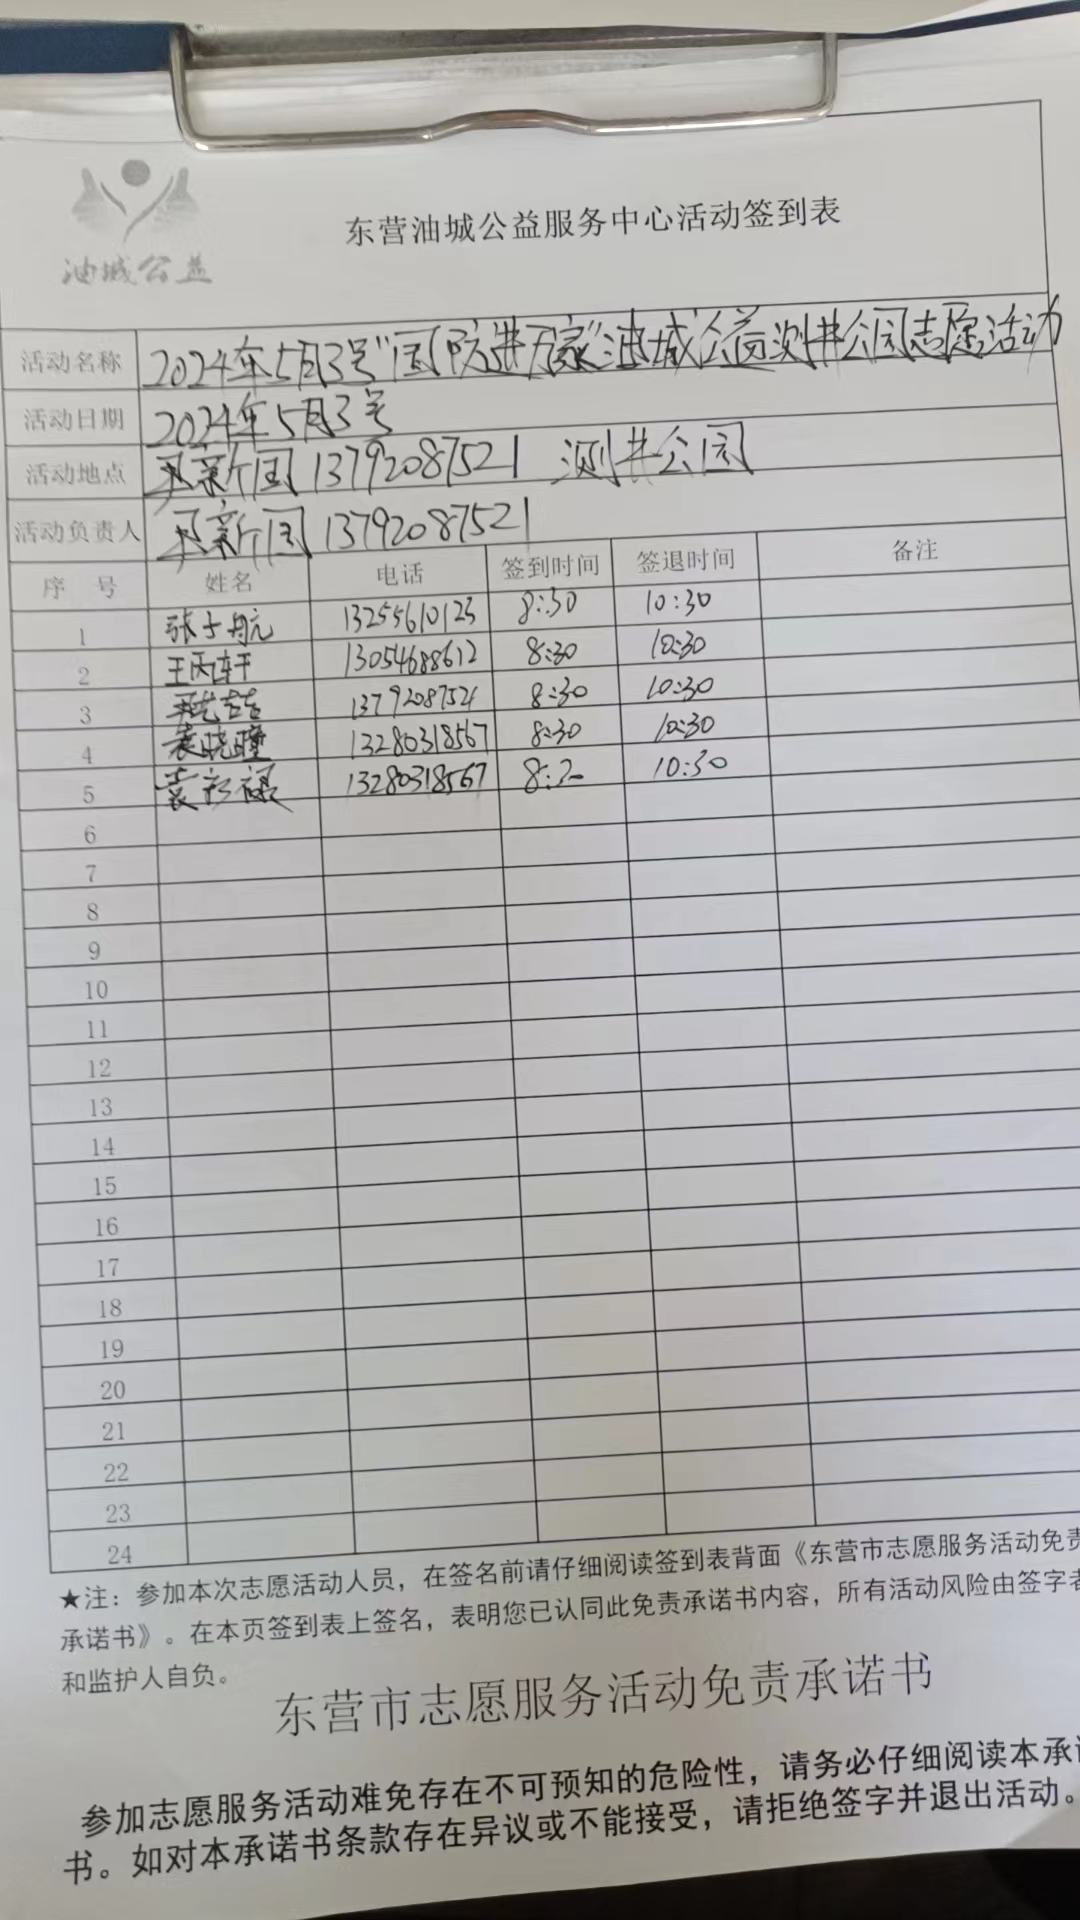 油城公益
东营油城公益服务中心活动签到表
活动名称 2024年5月3号"国防进万家"油城公益测井公园志愿活动
活动日期 2024年5月3号
活动地点 新国 13792087521 测井公园
活动负责人 新国 13792087521
序 号 姓名 电话 签到时间 签退时间 备注
1 张子航 13255610123 8:30 10:30
2 王丙轩 13054688612 8:30 10:30
3 8:30 10:30
4 袁晓瞳 13280318567 8:30 10:30
5 袁 13280318567 10:30
6
7
8
9
10
11
12
13
14
15
16
17
18
19
20
21
22
23
24
★注：参加本次志愿活动人员，在签名前请仔细阅读签到表背面《东营市志愿服务活动免责
承诺书》。在本页签到表上签名，表明您已认同此免责承诺书内容，所有活动风险由签字者
和监护人自负。
东营市志愿服务活动免责承诺书
参加志愿服务活动难免存在不可预知的危险性，请务必仔细阅读本承诺
书。如对本承诺书条款存在异议或不能接受，请拒绝签字并退出活动。